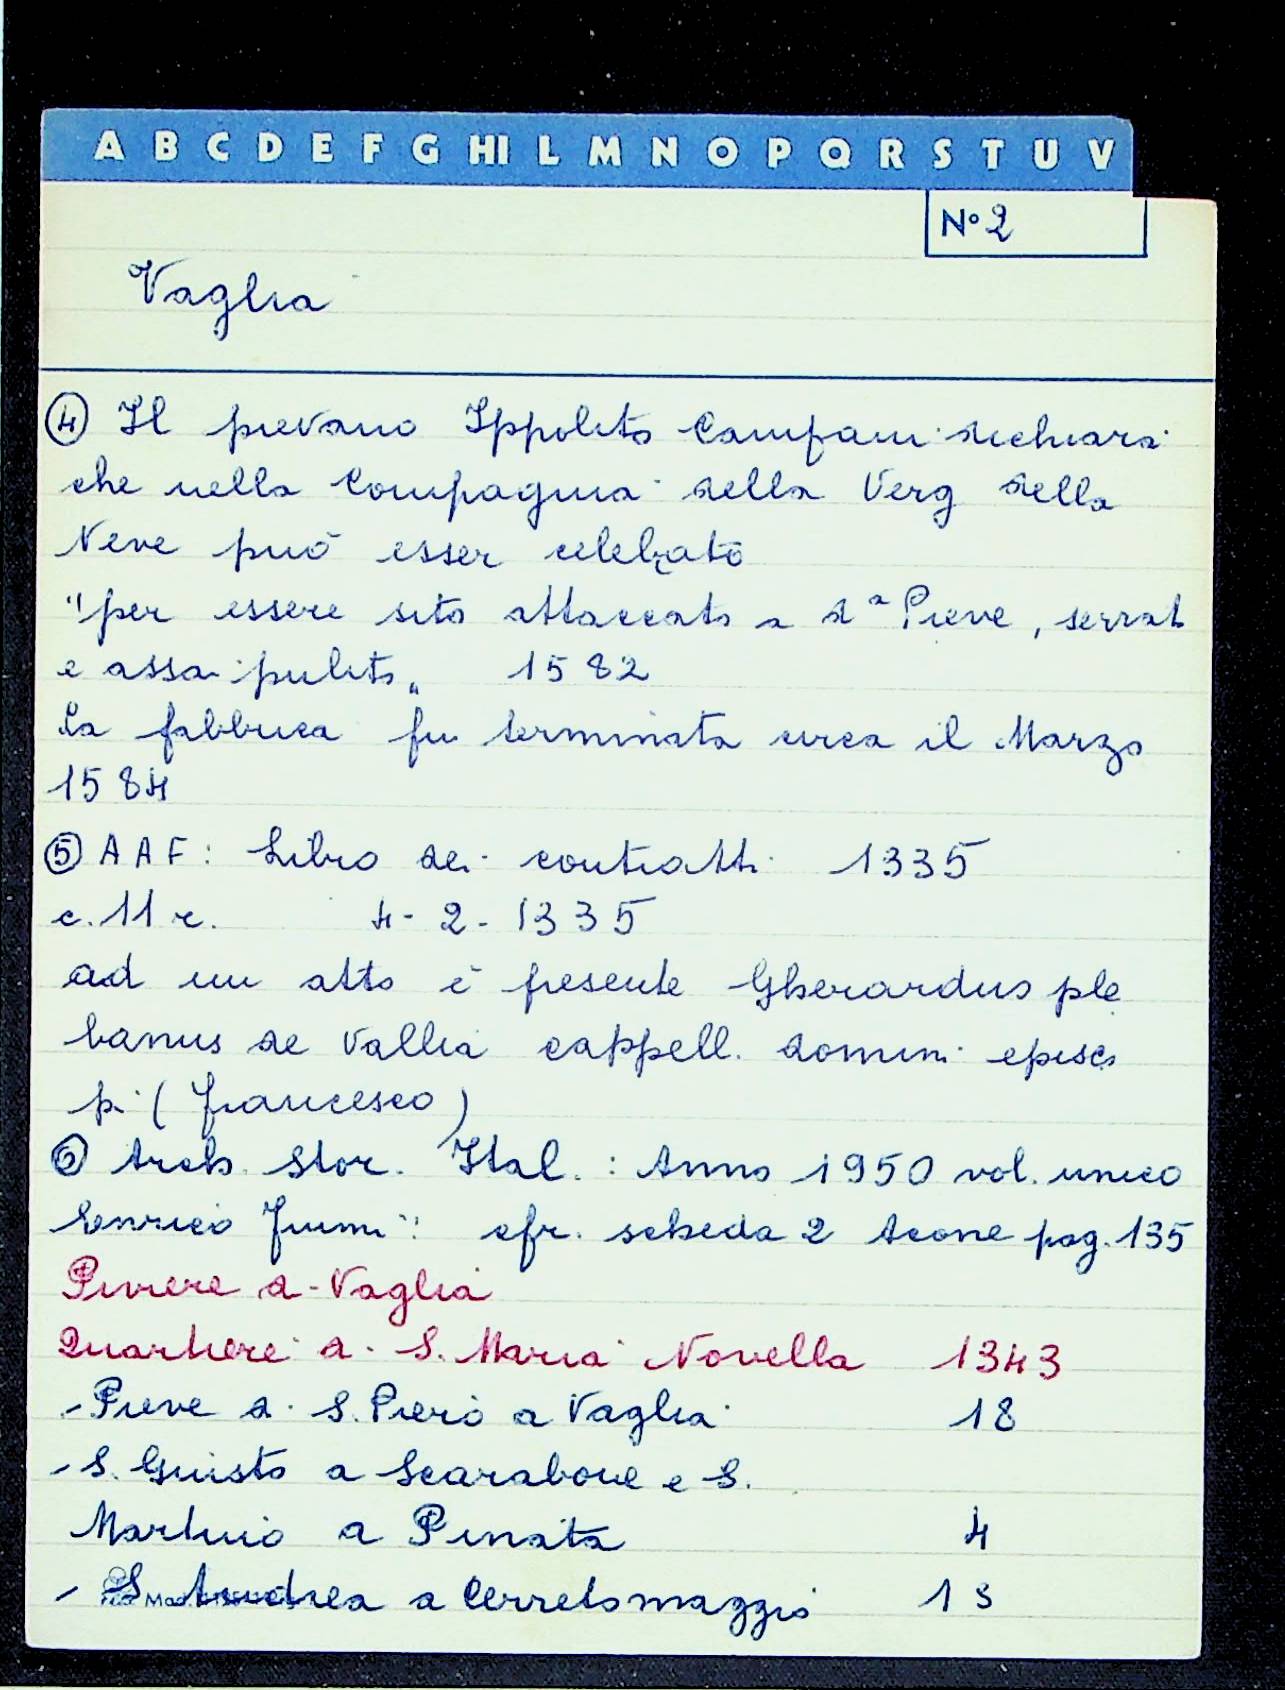 A B C D E F G HI L M N O P Q R S T U V
N° 2
Vaglia
④ Il pievano Ippolito Campani dichiara
che nella Compagnia della Verg della
Neve può esser celebrato
"per essere sito attaccato a d.ª Pieve, serrat
e assai pulito„ 1582
La fabbrica fu terminata circa il Marzo
1584
⑤ AAF: Libro dei contratti 1335
c. 11 r. 4-2-1335
ad un atto è presente Gherardus ple
banus de Vallia cappell. domini episco
pi (Francesco)
⑥ Arch. Stor. Ital.: Anno 1950 vol. unico
Enrico Fiumi: cfr. scheda 2 Acone pag. 135
Piviere di Vaglia
Quartiere di S. Maria Novella 1343
- Pieve di S. Piero a Vaglia 18
- S. Giusto a Scarabone e S.
Martino a Pinata 4
- S. Andrea a Cerretomaggio 13